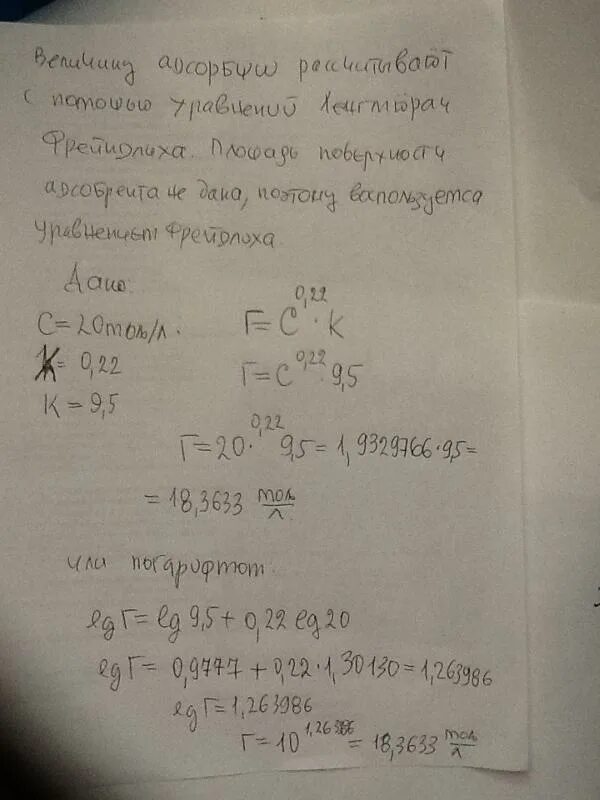 Величину адсорбции рассчитывают
с помошью уравнений Ленгмюрач
Фрейндлиха. Площадь поверхности
адсобрента не дана, поэтому воспользуемся
уравнением Фрейдлиха.
Дано:
C=20моль/л. Г=C^0,22 · K
K= 0,22 Г=C^0,22 9,5
K=9,5
Г=20·^0,22 9,5=1,9329766·9,5=
=18,3633 моль/л
или логарифмом.
lgГ=lg9,5+0,22lg20
lgГ=0,9777+0,22·1,30130=1,263986
lgГ=1,263986
Г=10^1,26386=18,3633 моль/л